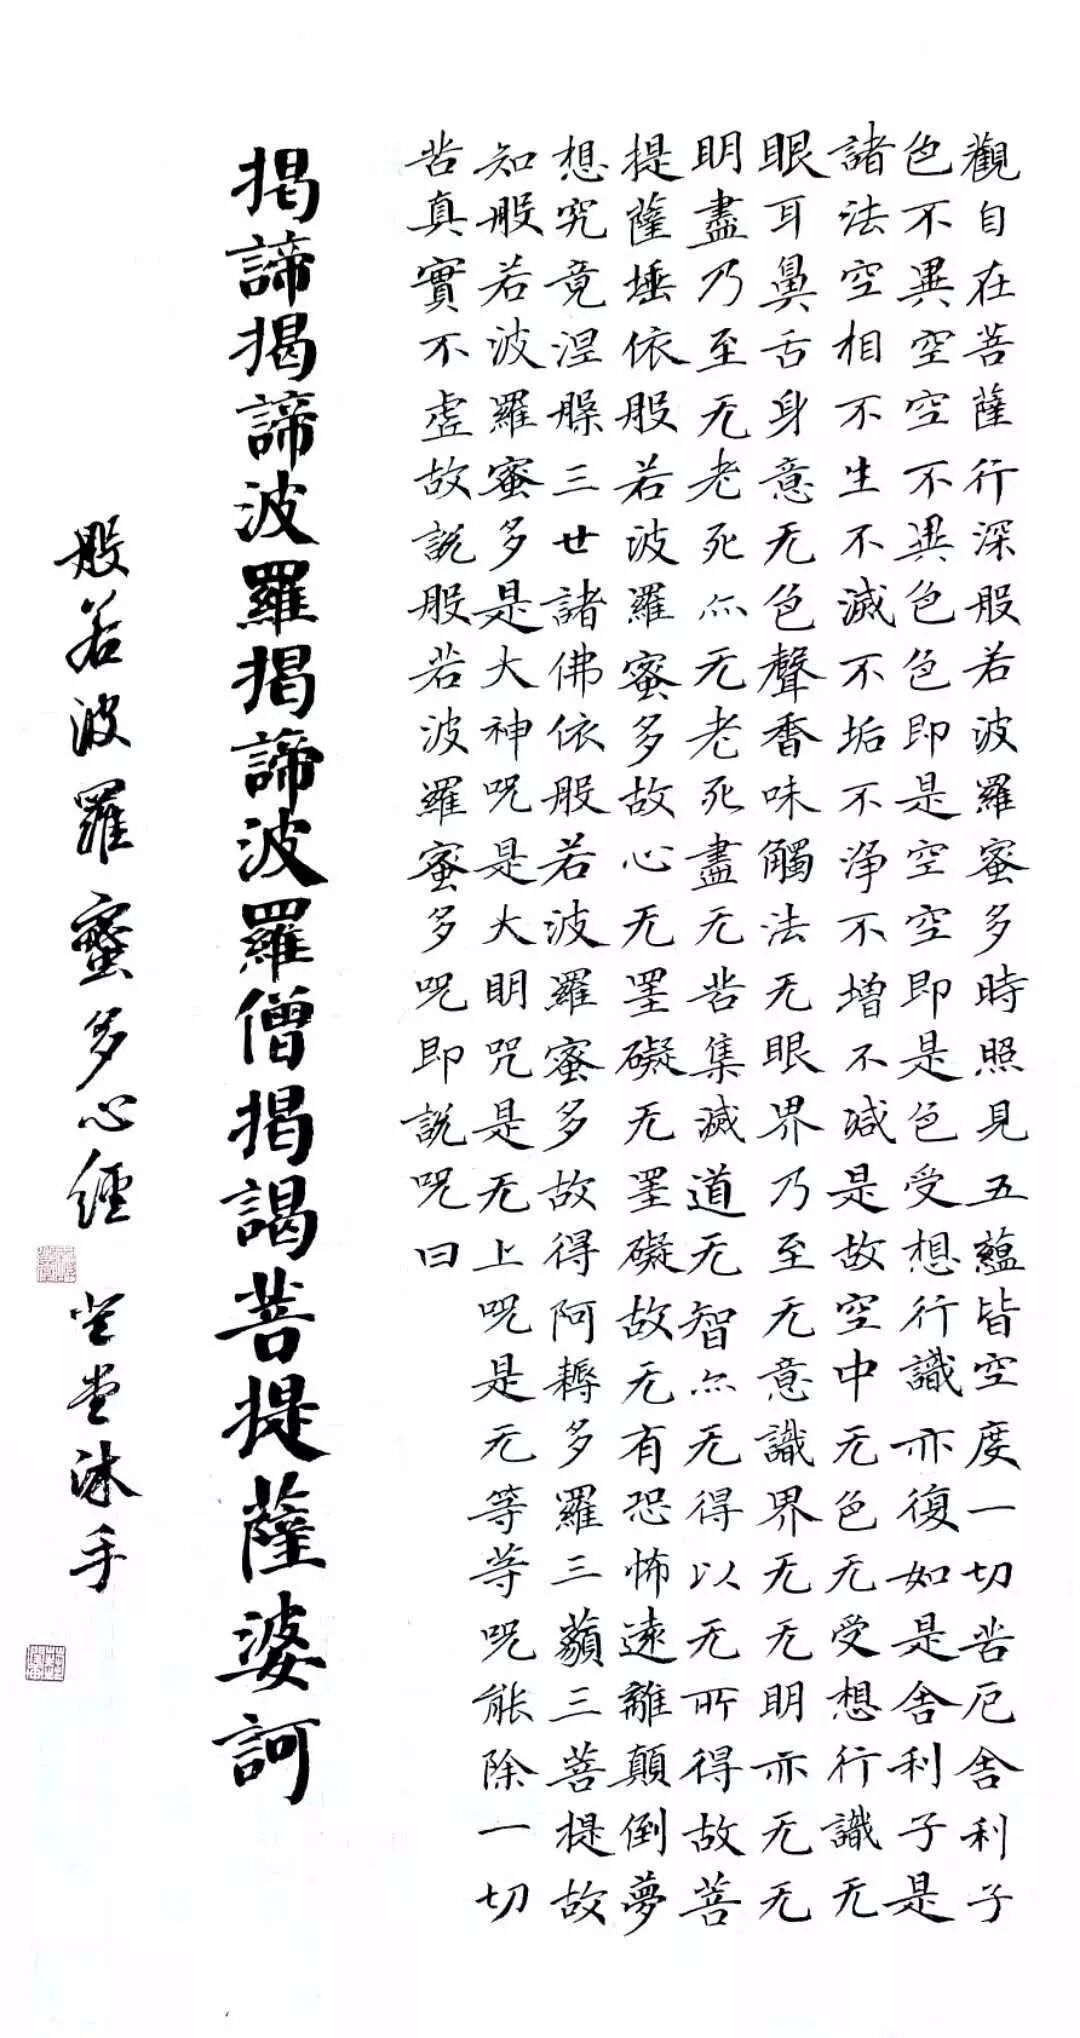 觀自在菩薩行深般若波羅蜜多時照見五蘊皆空度一切苦厄舍利子
色不異空空不異色色即是空空即是色受想行識亦復如是舍利子是
諸法空相不生不滅不垢不淨不增不減是故空中无色无受想行識无
眼耳鼻舌身意无色聲香味觸法无眼界乃至无意識界无无明亦无无
明盡乃至无老死亦无老死盡无苦集滅道无智亦无得以无所得故菩
提薩埵依般若波羅蜜多故心无罣礙无罣礙故无有恐怖遠離顛倒夢
想究竟涅槃三世諸佛依般若波羅蜜多故得阿耨多羅三藐三菩提故
知般若波羅蜜多是大神呪是大明咒是无上呪是无等等呪能除一切
苦真實不虛故説般若波羅蜜多呪即説呪曰
揭諦揭諦波羅揭諦波羅僧揭謁菩提薩婆訶
般若波羅蜜多心經
沐手